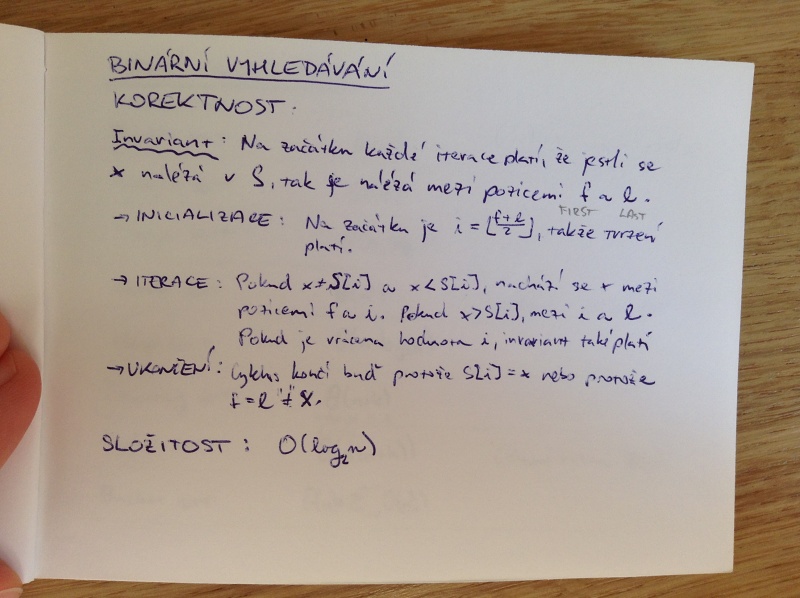 BINÁRNÍ VYHLEDÁVÁNÍ
KOREKTNOST.
Invariant: Na začátku každé iterace platí, že jestli se
x nalézá v S, tak je nalézá mezi pozicemi f a l.
FIRST LAST
→ INICIALIZACE: Na začátku je i = ⌊f+l/2⌋, takže tvrzení
platí.
→ ITERACE: Pokud x≠S[i] a x<S[i], nachází se x mezi
pozicemi f a i. Pokud x>S[i], mezi i a l.
Pokud je vrácena hodnota i, invariant také platí
→ UKONČENÍ: Cyklus končí buď protože S[i]=x nebo protože
f=l ≠ x.
SLOŽITOST: O(log₂n)